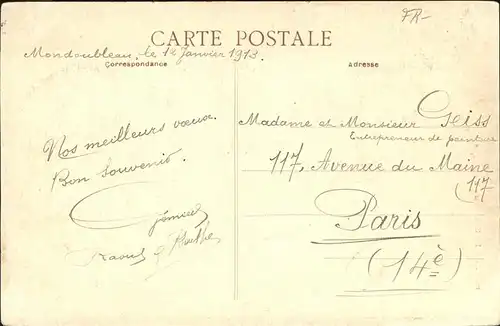 FR-
CARTE POSTALE
Mondoubleau, le 12 Janvier 1913.
Correspondance
Adresse
Nos meilleurs vœux.
Bon Souvenir.
Raoul &
Madame et Monsieur Geiss
Entrepreneur de peinture
117, Avenue du Maine
(117
Paris
(14è)